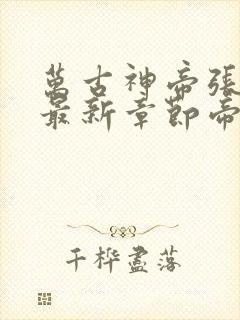 萬古神帝張
最新章節帝
千桦盡落